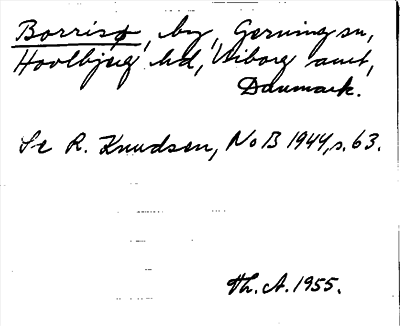 Borrisø, by, Gerning sn,
Hovlbjerg hd, Viborg amt,
Danmark.
Se R. Knudsen, NoB 1944, s. 63.
Th. A. 1955.